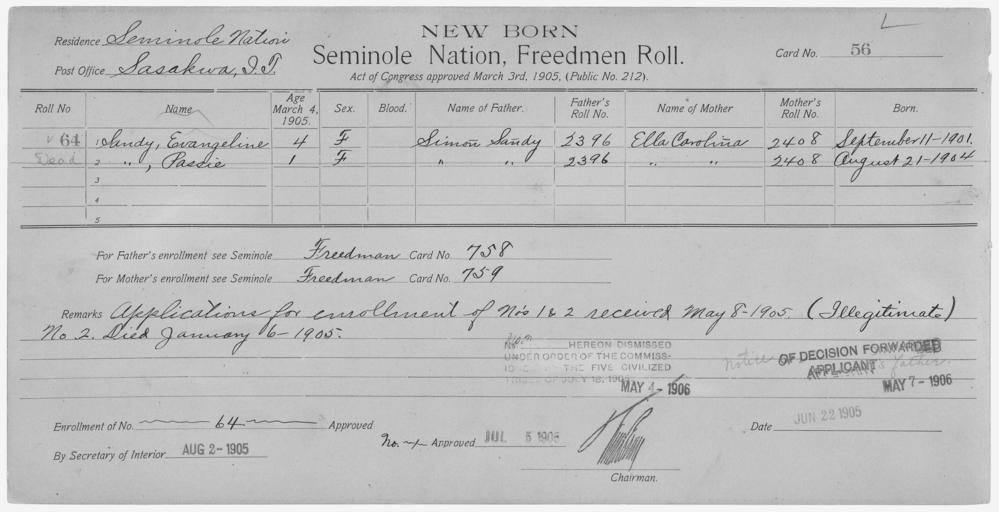 NEW BORN
Seminole Nation, Freedmen Roll.
Act of Congress approved March 3rd, 1905, (Public No. 212).
Residence Seminole Nation
Post Office Sasakwa, I.T.
Card No. 56
Roll No Name Age March 4, 1905. Sex. Blood. Name of Father. Father's Roll No. Name of Mother Mother's Roll No. Born.
64 1 Sandy, Evangeline 4 F Simon Sandy 2396 Ella Carolina 2408 September 11-1901.
Dead 2 " , Passie 1 F " " 2396 " " 2408 August 21-1904
3
4
5
For Father's enrollment see Seminole Freedman Card No. 758
For Mother's enrollment see Seminole Freedman Card No. 759
Remarks Applications for enrollment of Nos 1 & 2 received May 8-1905. (Illegitimate)
No. 2. Died January 6-1905.
HEREON DISMISSED
UNDER ORDER OF THE COMMISS-
THE FIVE CIVILIZED
OF JULY 18, 1905
MAY 4-1906
Notice OF DECISION FORWARDED
APPLICANT's father.
MAY 7-1906
Enrollment of No. 64 Approved
By Secretary of Interior AUG 2-1905
No. 1 Approved JUL 5 1905
Chairman.
Date JUN 22 1905